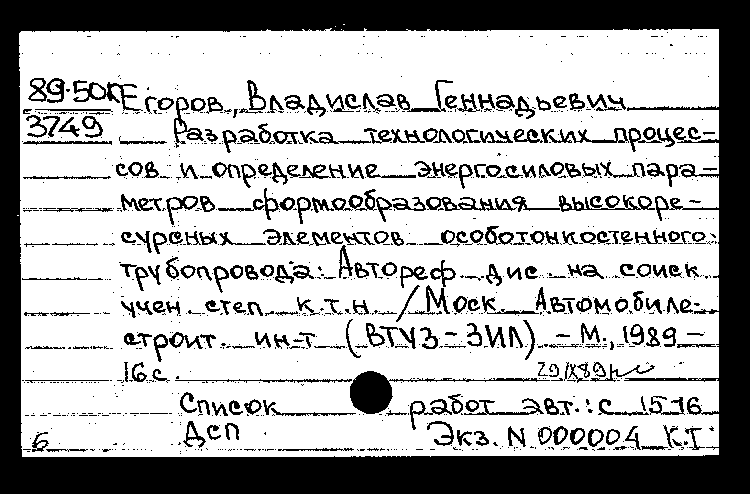 89-50к Егоров, Владислав Геннадьевич
3749 Разработка технологических процес-
сов и определение энергосиловых пара-
метров формообразования высокоре-
сурсных элементов особотонкостенного
трубопровода: Автореф. дис. на соиск
учен. степ. к.т.н. / Моск. Автомобиле-
строит. ин-т (ВТУЗ-ЗИЛ) - М., 1989 -
16 с.
Список работ авт.: с 15-16
ДСП Экз. N 000004 К.Т.
6